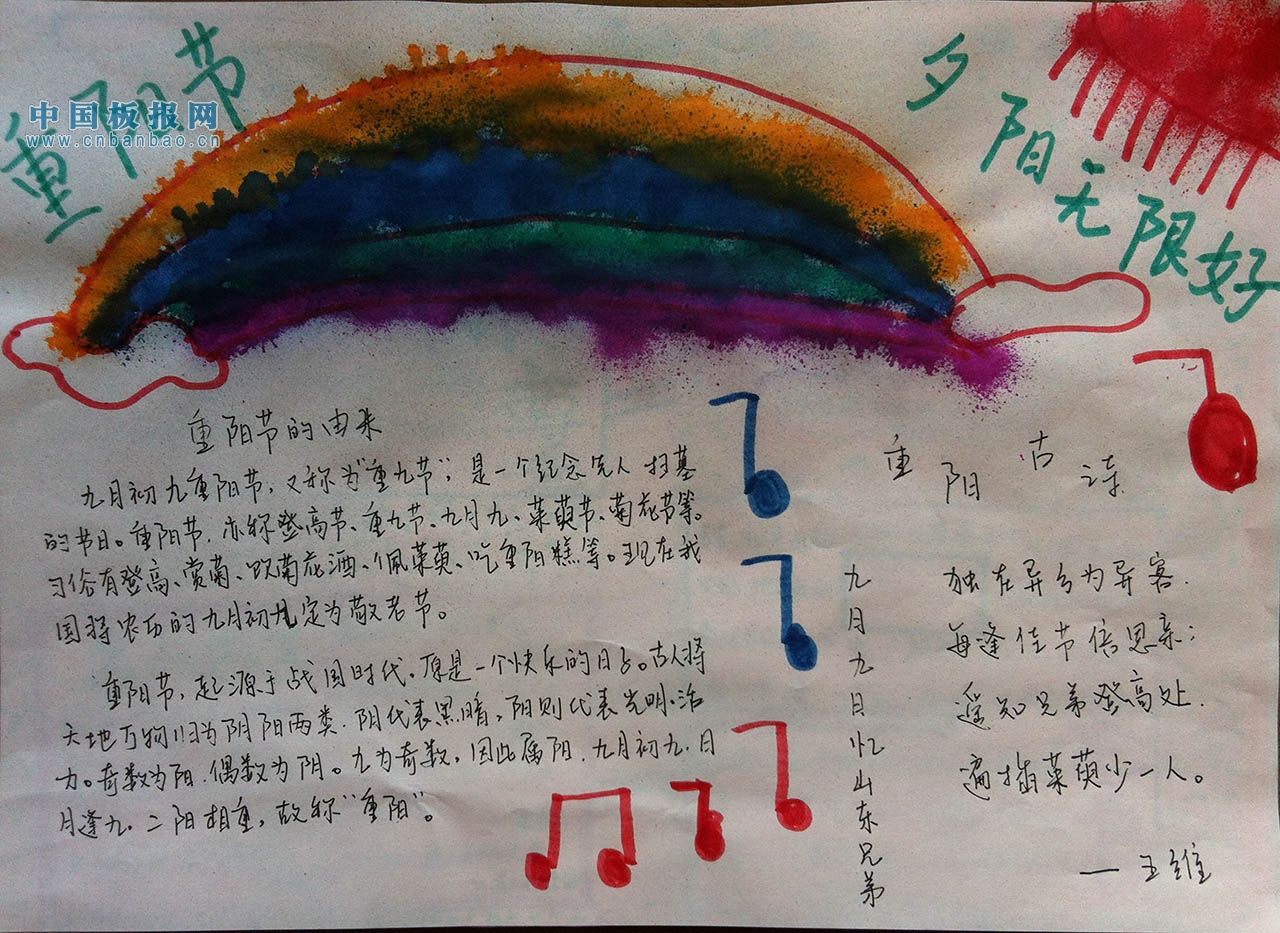 重阳节
中国板报网
www.cnbanbao.cn
夕阳无限好
重阳节的由来
九月初九重阳节,又称为“重九节”,是一个纪念先人扫墓
的节日。重阳节,亦称登高节、重九节、九月九、茱萸节、菊花节等。
习俗有登高、赏菊、饮菊花酒、佩茱萸、吃重阳糕等。现在我
国将农历的九月初九定为敬老节。
重阳节,起源于战国时代,原是一个快乐的日子。古人将
天地万物归为阴阳两类,阴代表黑暗,阳则代表光明、活
力。奇数为阳,偶数为阴。九为奇数,因此属阳,九月初九,日
月逢九,二阳相重,故称“重阳”。
重阳古诗
九月九日忆山东兄弟
独在异乡为异客,
每逢佳节倍思亲;
遥知兄弟登高处,
遍插茱萸少一人。
—王维